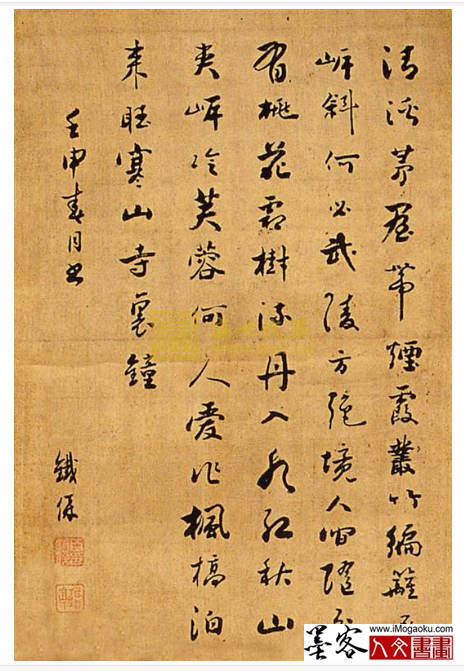 清溪茅屋帶煙霞叢竹編籬
岸斜何必武陵方絕境人間隨處
有桃花霜樹流丹入水紅秋山
夾岸冷芙蓉何人愛作楓橋泊
來聽寒山寺裏鐘
壬申春月書
鐵保
墨客
www.iMogaoku.com
人文書畫